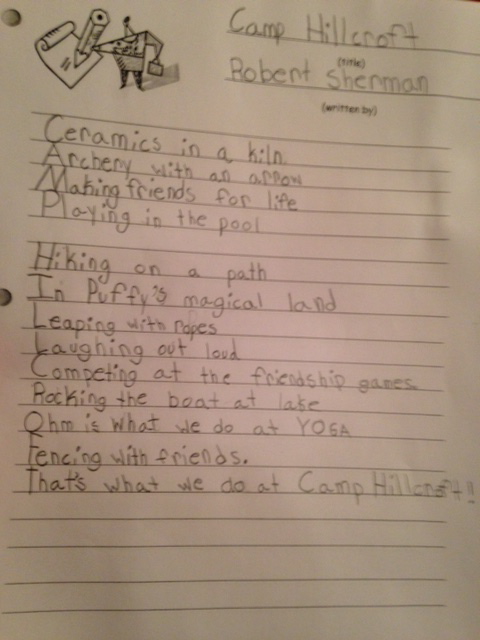 Camp Hillcroft
(title)
Robert Sherman
(written by)
Ceramics in a kiln.
Archery with an arrow
Making friends for life
Playing in the pool
Hiking on a path
In Puffy's magical land
Leaping with ropes
Laughing out loud
Competing at the friendship games.
Rocking the boat at lake
Ohm is what we do at YOGA
Fencing with friends.
That's what we do at Camp Hillcroft!!